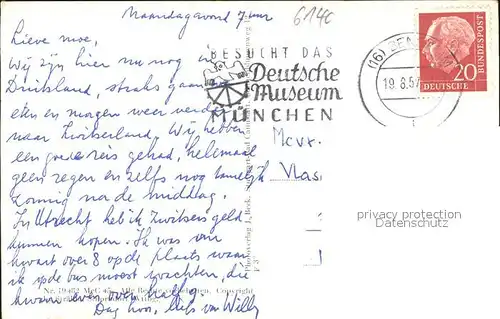 Maandagavond 7 uur
6140
Lieve moe,
Wij zijn hier nu nog in
Duitsland, straks gaan we
eten en morgen weer verder
naar Zwitserland. Wij hebben
een goede reis gehad, helemaal
geen regen en zelfs nog tamelijk
zonnig na de middag.
In Utrecht heb ik Zwitsers geld
kunnen kopen. Ik was om
kwart over 8 op de plaats waar
ik de bus moest wachten, die
kwam even over half 9.
Dag hoor, liefs van Willy
BESUCHT DAS
Deutsche
Museum
MÜNCHEN
(16)
19.8.57
DEUTSCHE
BUNDESPOST
20
Mevr.
Vlas
privacy protection
Datenschutz